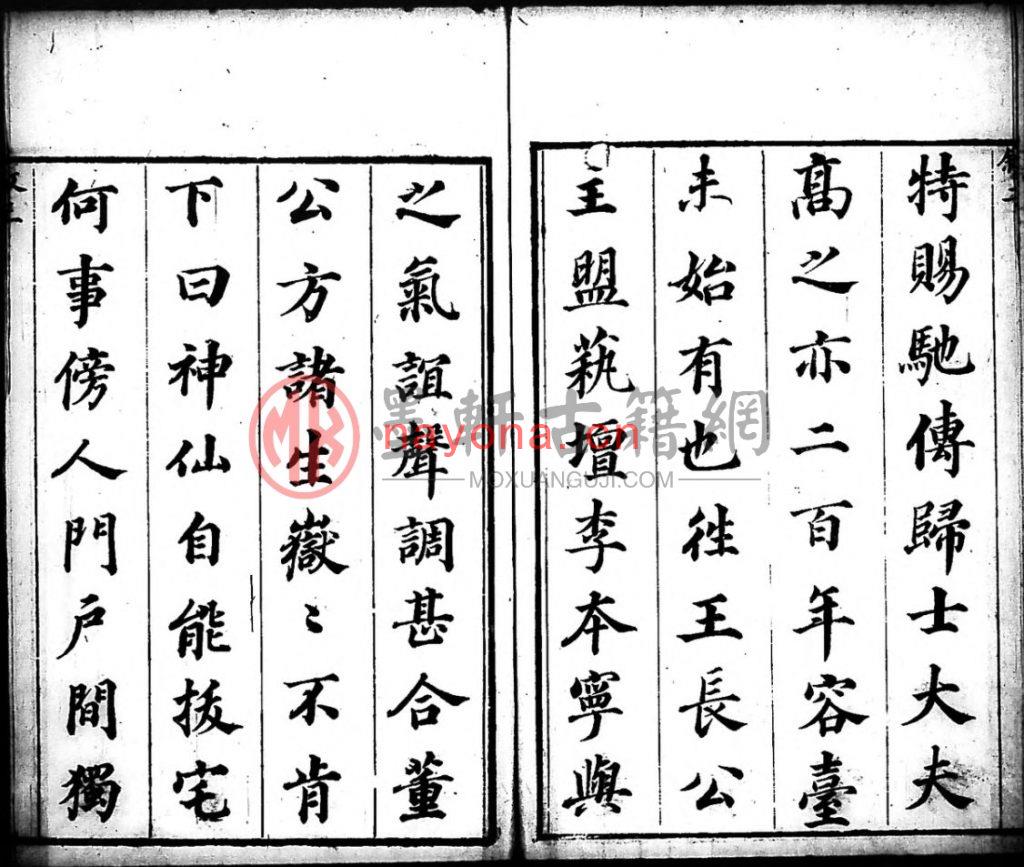 特賜馳傳歸士大夫
高之亦二百年容臺
未始有也徃王長公
主盟蓺壇李本寧與
之氣誼聲調甚合董
公方諸生嶽〻不肯
下曰神仙自能拔宅
何事傍人門戸間獨
墨軒古籍網
nayona.cn
MOXUANGUJI.COM